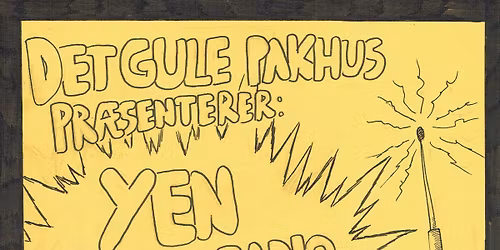 DET GULE PAKHUS
PRÆSENTERER:
YEN